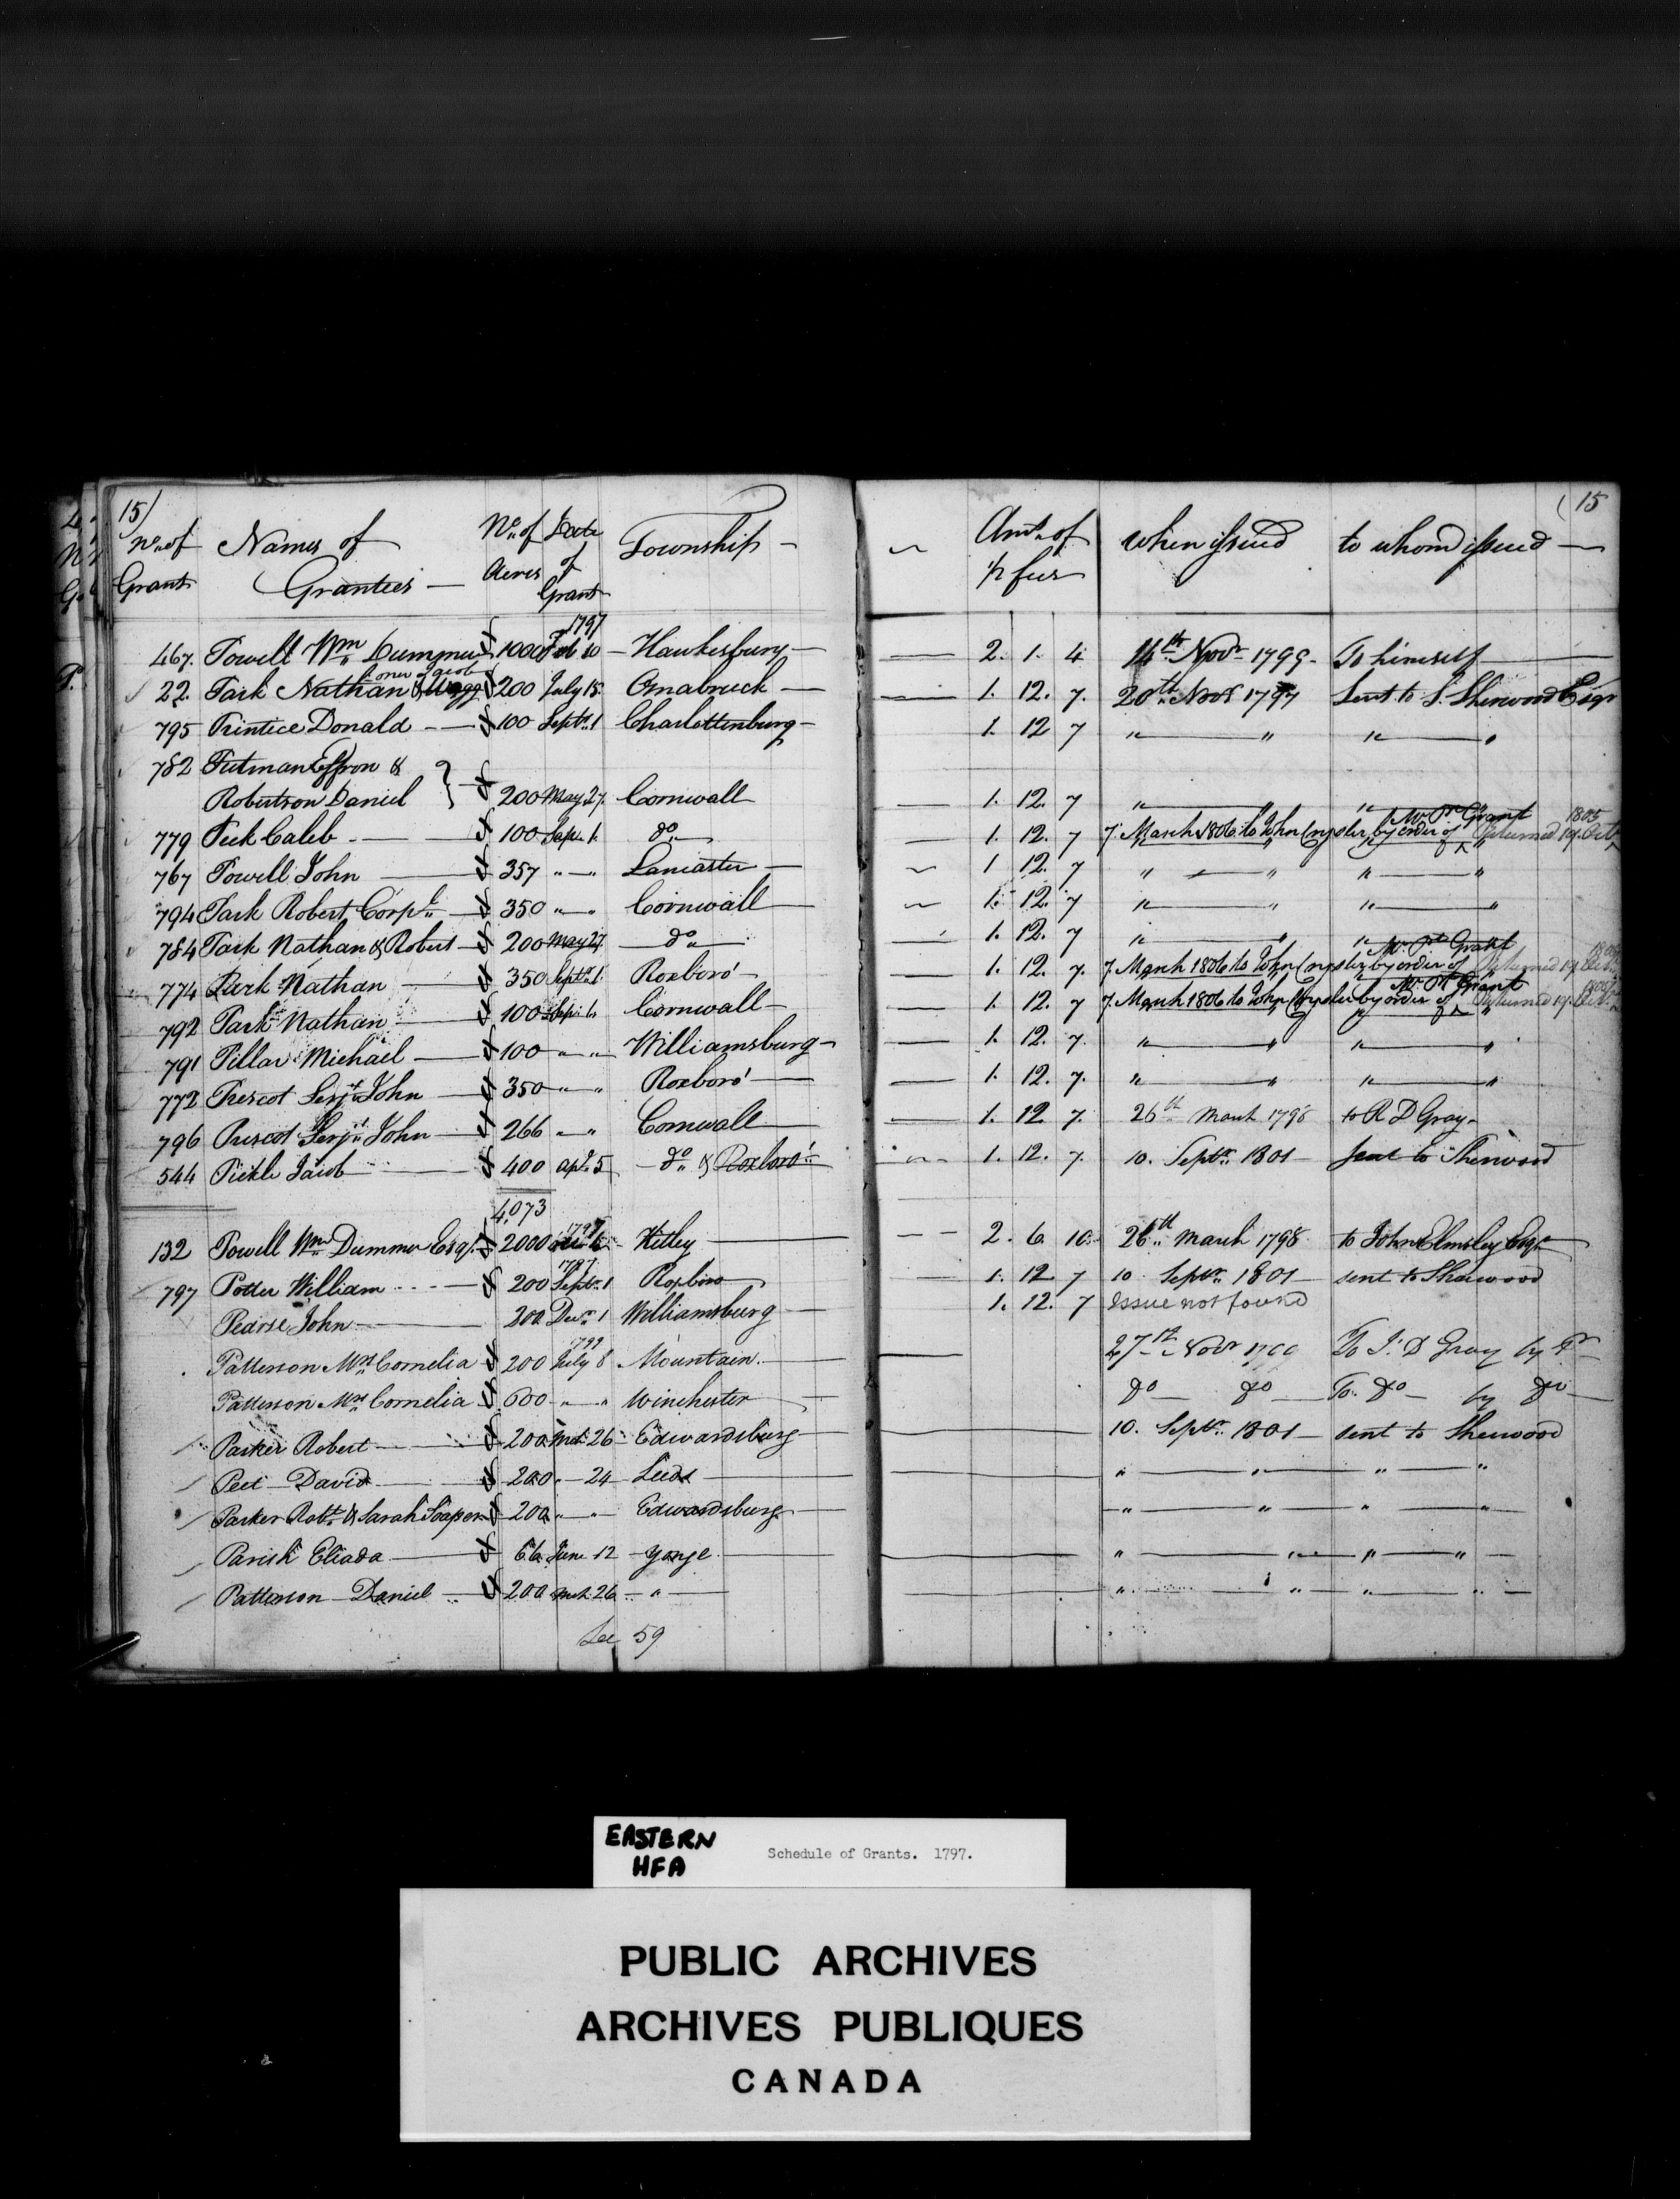 15) (15
No. of Grant Names of Grantees — No. of Acres Date of Grant Township — Amt. of pr fees when issued to whom issued —
1797
467. Powell Wm Dummer 1000 Feb 10 — Hawkesbury — 2. 1. 4 14th Novr 1799 — To himself
Jacob
22. Park Nathan & 200 July 18 Osnabruck — 1. 12. 7. 20th Novr 1797 Sent to S. Sherwood Esqr
795 Printice Donald — 100 Septr. 1 Charlottenburg — 1. 12 7 " " " "
782 Putman Effron &
Robertson Daniel } 200 May 27. Cornwall 1. 12. 7 " " " "
Mr. Pr. Grant 1805
779 Peek Caleb — 100 Sepr. 1. do 1. 12. 7 7. March 1806 to John Crysler by order of Returned 19. Octr
767 Powell John 357 " — " Lancaster — 1 12. 7 " " " "
794 Park Robert Corpl. 350 " — " Cornwall 1. 12. 7 " " " "
784 Park Nathan & Robert 200 May 27 — do 1. 12. 7 " " " "
Mr. Pr. Grant
774 Park Nathan 350 Septr. 1. Roxboro' — 1. 12. 7. 7 March 1806 to John Crysler by order of Returned 19.
Mr. Pr. Grant
792 Park Nathan 100 Sepr. 1. Cornwall — 1. 12. 7 7. March 1806 to John Crysler by order of Returned 19. Octr
791 Pillar Michael 100 " " Williamsburg — 1. 12. 7. " " " "
772 Prescot Serjt. John 350 — " Roxboro' 1. 12. 7. " " " "
796 Prescot Serjt. John 266 " — " Cornwall 1. 12. 7. 26th March 1798 to R D Gray.
544 Pickle Jacob 400 Apl. 5 — do & Roxboro' 1. 12. 7. 10. Septr. 1801 — sent to Sherwood
4,073
132 Powell Wm. Dummer Esqr. 2000 Kitley 2. 6. 10. 26th March 1798 to John Elmsley Esqr
1797
797 Potter William 200 Septr. 1 Roxboro 1. 12 7 10 Septr. 1801 — sent to Sherwood
Pearse John 200 Decr. 1 Williamsburg 1. 12. 7 Issue not found
1799
Patterson Mrs. Cornelia 200 July 8 Mountain. 27th Novr To D Gray by Pr
Patterson Mrs. Cornelia 600 " — " Winchester do — do — To do — by do
Parker Robert 200 Mch. 26 Edwardsburg 10. Septr. 1801 — sent to Sherwood
Peet David 200 " — 24 — Leeds " " " "
Parker Robt. & Sarah Soaper 200 " — " Edwardsburg " " " "
Parish Eliada 66 June 12 — Yonge " " " "
Patterson Daniel 200 Mch. 26 — " " " " "
See 59
EASTERN
HFA
Schedule of Grants. 1797.
PUBLIC ARCHIVES
ARCHIVES PUBLIQUES
CANADA